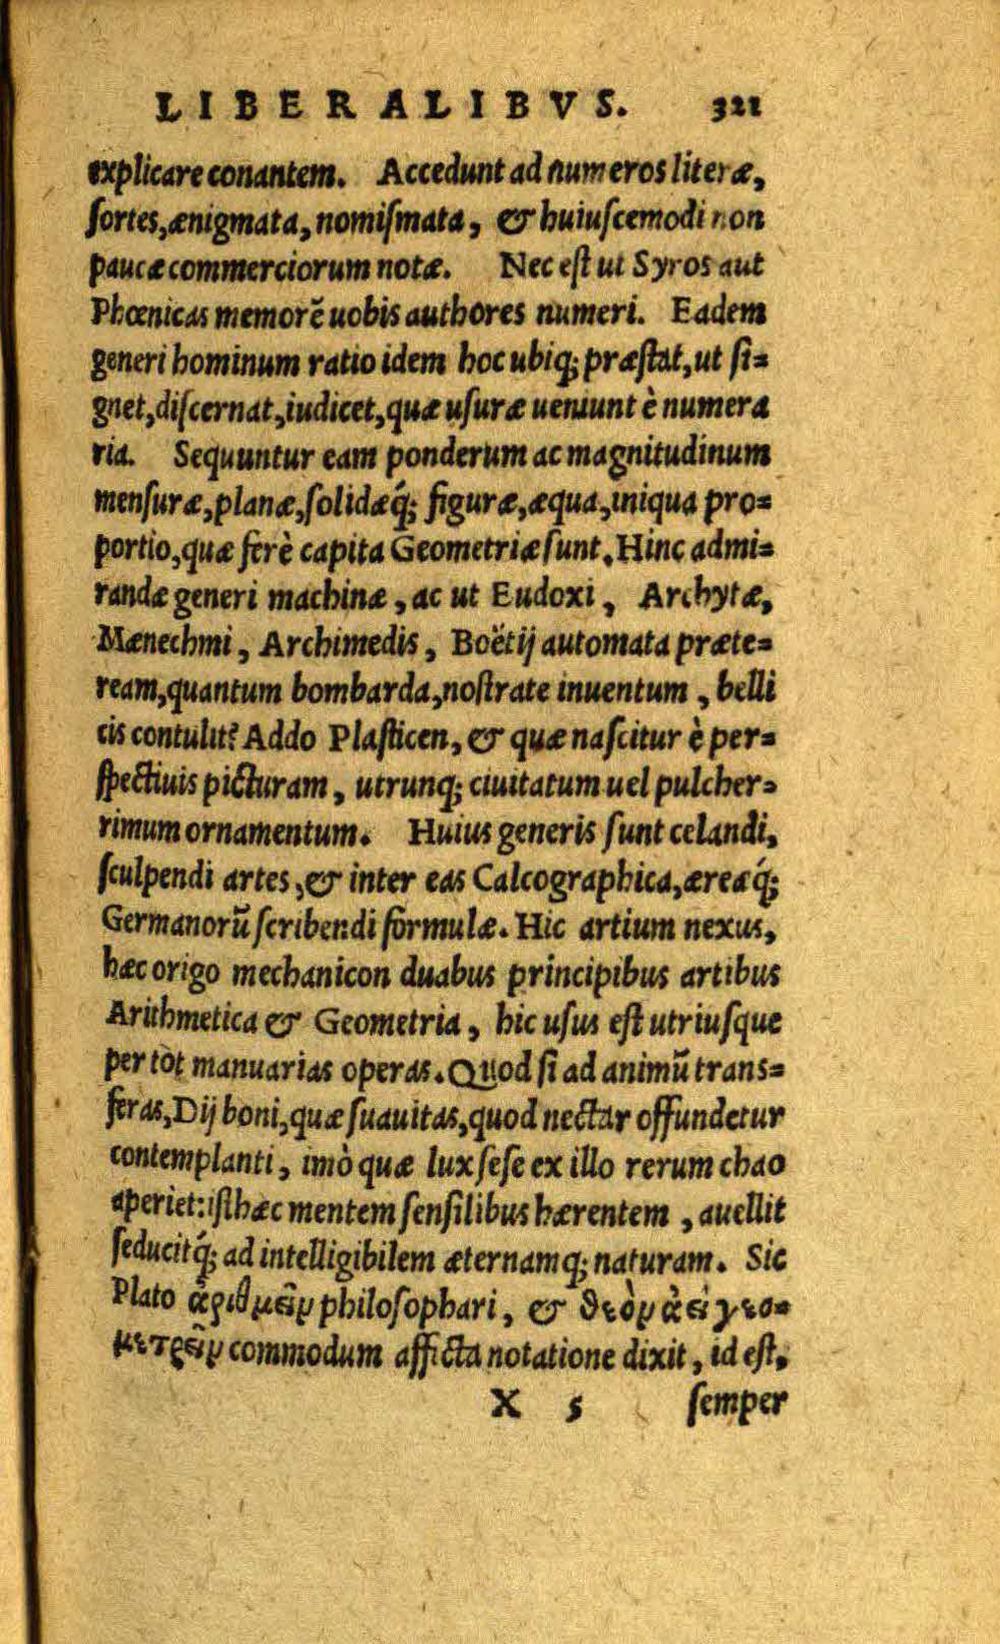 LIBERALIBVS. 321
explicare conantem. Accedunt ad numeros literæ,
ſortes, ænigmata, nomiſmata, & huiuſcemodi non
paucæ commerciorum notæ. Nec eſt ut Syros aut
Phœnicas memorẽ uobis authores numeri. Eadem
generi hominum ratio idem hoc ubiq; præſtat, ut ſi=
gnet, diſcernat, iudicet, quæ uſuræ ueniunt è numera
ria. Sequuntur eam ponderum ac magnitudinum
menſuræ, planæ, ſolidæq́; figuræ, æqua, iniqua pro=
portio, quæ ferè capita Geometriæ ſunt. Hinc admi=
randæ generi machinæ, ac ut Eudoxi, Archytæ,
Mænechmi, Archimedis, Boëtij automata præte=
ream, quantum bombarda, noſtrate inuentum, belli
cis contulit? Addo Plaſticen, & quæ naſcitur è per=
ſpectiuis picturam, utrunq; ciuitatum uel pulcher=
rimum ornamentum. Huius generis ſunt celandi,
ſculpendi artes, & inter eas Calcographica, æreæq́;
Germanorũ ſcribendi formulæ. Hic artium nexus,
hæc origo mechanicon duabus principibus artibus
Arithmetica & Geometria, hic uſus eſt utriuſque
per tot manuarias operas. Quod ſi ad animũ trans=
feras, Dij boni, quæ ſuauitas, quod nectar offundetur
contemplanti, imò quæ lux ſeſe ex illo rerum chao
aperiet: iſthæc mentem ſenſilibus hærentem, auellit
ſeducitq́; ad intelligibilem æternamq; naturam. Sic
Plato ἀριθμεῖν philoſophari, & θεὸν ἀεὶ γεο=
μετρεῖν commodum afficta notatione dixit, id eſt,
X 5 ſemper